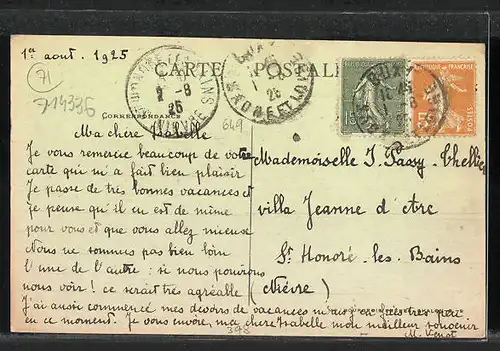 1er aout. 1925
71
714336
CARTE POSTALE
CORRESPONDANCE
649
2 -8
25
Ma chère Isabelle
Je vous remercie beaucoup de votre
carte qui m'a fait bien plaisir
Je passe de très bonnes vacances et
je pense qu'il en est de même
pour vous et que vous allez mieux
Nous ne sommes pas bien loin
l'une de l'autre : si nous pouvions
nous voir ! ce serait très agréable
J'ai aussi commencé mes devoirs de vacances mais j'en fais très peu
en ce moment. Je vous envoie, ma chère Isabelle mon meilleur souvenir
398
Mademoiselle I. Passy-Thellier
villa Jeanne d'Arc
St Honoré-les-Bains
(Nièvre)
REPUBLIQUE FRANÇAISE
POSTES
15